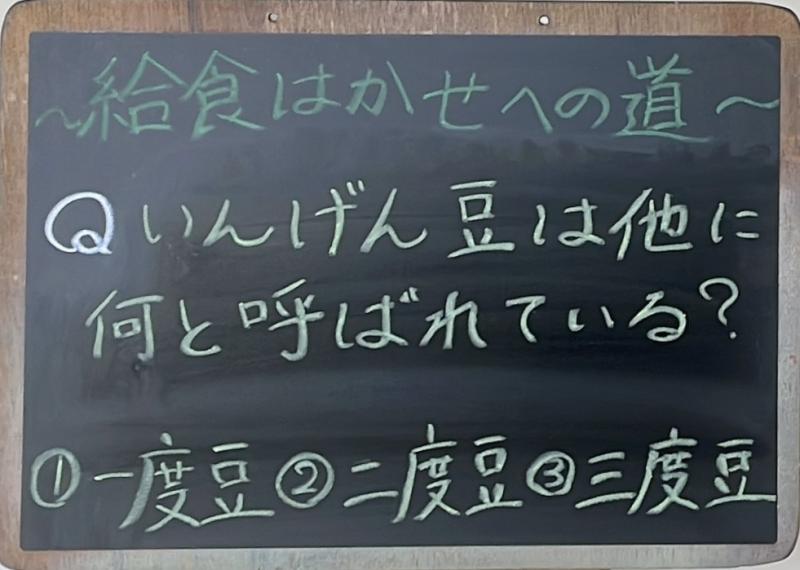 ～給食はかせへの道～
Qいんげん豆は他に
何と呼ばれている?
①一度豆②二度豆③三度豆